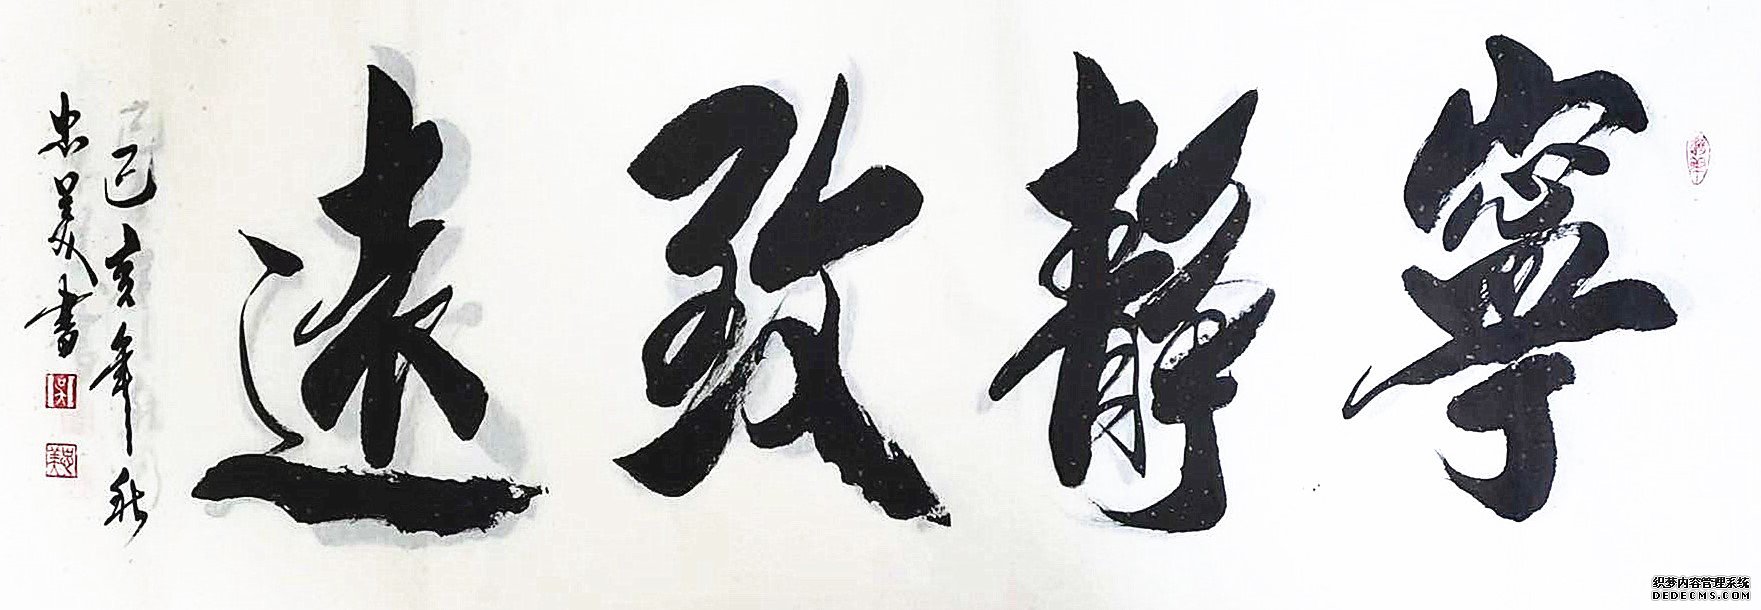 寧靜致遠
己亥年秋
忠美書
吴
忠美
织梦内容管理系统
DEDECMS.COM